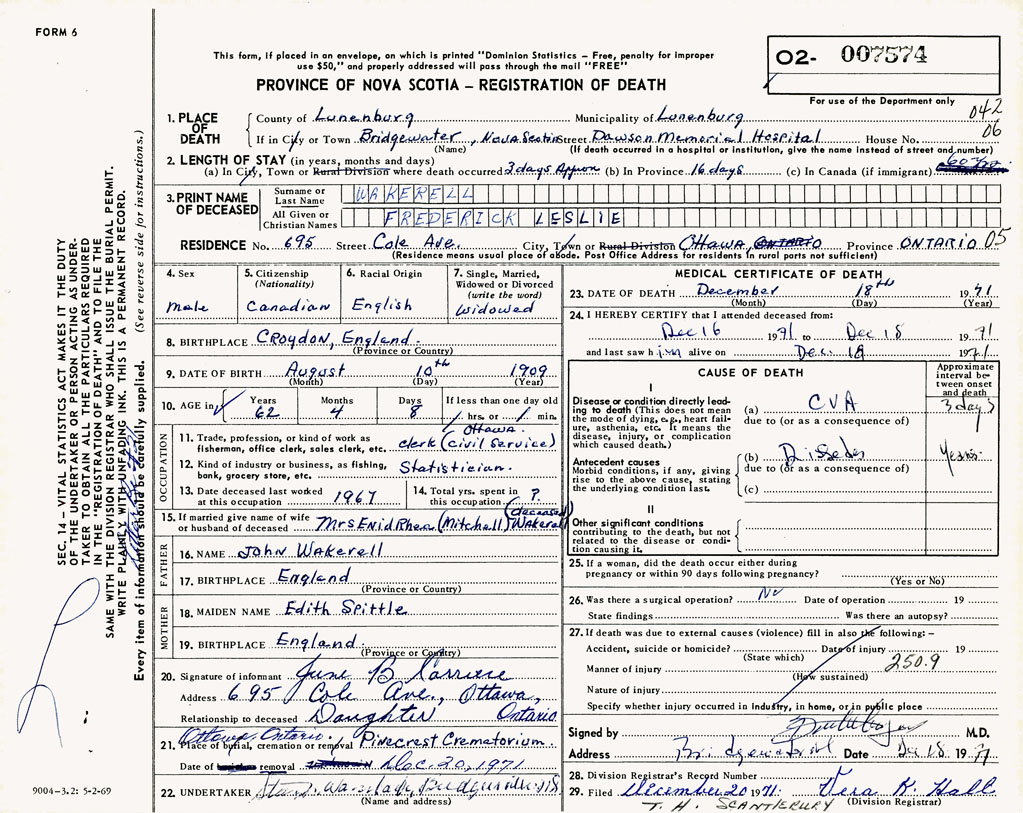 FORM 6
This form, if placed in an envelope, on which is printed "Dominion Statistics – Free, penalty for improper
use $50," and properly addressed will pass through the mail "FREE"
PROVINCE OF NOVA SCOTIA – REGISTRATION OF DEATH
02- 007574
For use of the Department only
042
06
1. PLACE OF DEATH
County of Lunenburg Municipality of Lunenburg
If in City or Town Bridgewater, Nova Scotia Street Dawson Memorial Hospital House No.
(Name) (If death occurred in a hospital or institution, give the name instead of street and number)
2. LENGTH OF STAY (in years, months and days)
(a) In City, Town or Rural Division where death occurred 3 days Approx (b) In Province 16 days (c) In Canada (if immigrant)
3. PRINT NAME OF DECEASED
Surname or Last Name WAKERELL
All Given or Christian Names FREDERICK LESLIE
RESIDENCE No. 695 Street Cole Ave. City, Town or Rural Division Ottawa, Ontario Province ONTARIO 05
(Residence means usual place of abode. Post Office Address for residents in rural parts not sufficient)
4. Sex
Male
5. Citizenship
(Nationality)
Canadian
6. Racial Origin
English
7. Single, Married,
Widowed or Divorced
(write the word)
Widowed
8. BIRTHPLACE Croydon, England.
(Province or Country)
9. DATE OF BIRTH August 10th 1909
(Month) (Day) (Year)
10. AGE in Years 62 Months 4 Days 8 If less than one day old hrs. or min.
OCCUPATION
11. Trade, profession, or kind of work as
fisherman, office clerk, sales clerk, etc.
Ottawa.
Clerk (Civil Service)
12. Kind of industry or business, as fishing,
bank, grocery store, etc.
Statistician.
13. Date deceased last worked
at this occupation 1967
14. Total yrs. spent in
this occupation ?
(deceased)
15. If married give name of wife
or husband of deceased Mrs Enid Rhea (Mitchell) Wakerell
FATHER
16. NAME John Wakerell
17. BIRTHPLACE England
(Province or Country)
MOTHER
18. MAIDEN NAME Edith Spittle
19. BIRTHPLACE England.
(Province or Country)
20. Signature of informant June B
Address 695 Cole Ave., Ottawa,
Relationship to deceased Daughter Ontario
Ottawa, Ontario.
21. Place of burial, cremation or removal Pinecrest Crematorium.
Date of removal Dec. 20, 1971
22. UNDERTAKER
(Name and address)
MEDICAL CERTIFICATE OF DEATH
23. DATE OF DEATH December 18th 1971
(Month) (Day) (Year)
24. I HEREBY CERTIFY that I attended deceased from:
Dec 16 1971 to Dec 18 1971
and last saw him alive on Dec. 18 1971
CAUSE OF DEATH
Approximate
interval be-
tween onset
and death
I
Disease or condition directly lead-
ing to death (This does not mean
the mode of dying, e.g., heart fail-
ure, asthenia, etc. It means the
disease, injury, or complication
which caused death.)
(a) CVA 3 days
due to (or as a consequence of)
Antecedent causes
Morbid conditions, if any, giving
rise to the above cause, stating
the underlying condition last.
(b) Years
due to (or as a consequence of)
(c)
II
Other significant conditions
contributing to the death, but not
related to the disease or condi-
tion causing it.
25. If a woman, did the death occur either during
pregnancy or within 90 days following pregnancy?
(Yes or No)
26. Was there a surgical operation? No Date of operation 19
State findings Was there an autopsy?
27. If death was due to external causes (violence) fill in also the following: –
Accident, suicide or homicide? Date of injury 19
(State which)
250.9
Manner of injury
(How sustained)
Nature of injury
Specify whether injury occurred in industry, in home, or in public place
Signed by M.D.
Address Bridgewater Date Dec 18 1971
28. Division Registrar's Record Number
29. Filed December 20 1971. Vera K. Hall
(Division Registrar)
T. H. SCANTLEBURY
SEC. 14 – VITAL STATISTICS ACT MAKES IT THE DUTY
OF THE UNDERTAKER OR PERSON ACTING AS UNDER-
TAKER TO OBTAIN ALL THE PARTICULARS REQUIRED
IN THE "REGISTRATION OF DEATH" AND TO FILE THE
SAME WITH THE DIVISION REGISTRAR WHO SHALL ISSUE THE BURIAL PERMIT.
WRITE PLAINLY WITH UNFADING INK. THIS IS A PERMANENT RECORD.
Every item of information should be carefully supplied. (See reverse side for instructions.)
9004-3.2: 5-2-69